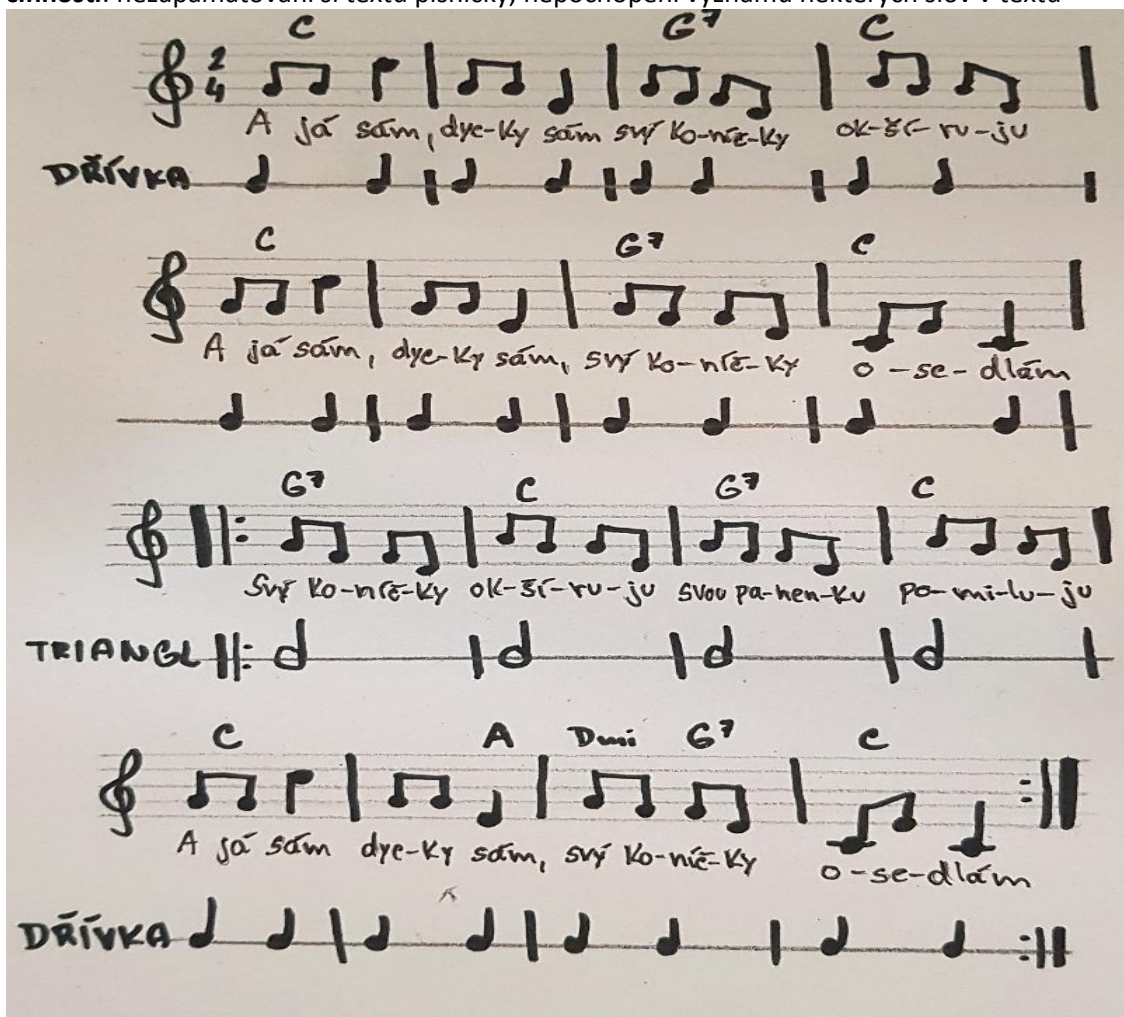 činností: nezapamatování si textu písničky, nepochopení významu některých slov v textu
C G7 C
2
4
A já sám, dyc-ky sám svý ko-níč-ky ok-ší-ru-ju
DŘÍVKA
C G7 C
A já sám, dyc-ky sám, svý ko-níč-ky o-se-dlám
G7 C G7 C
Svý ko-níč-ky ok-ší-ru-ju svou pa-nen-ku po-mi-lu-ju
TRIANGL
C A Dmi G7 C
A já sám dyc-ky sám, svý ko-níč-ky o-se-dlám
DŘÍVKA